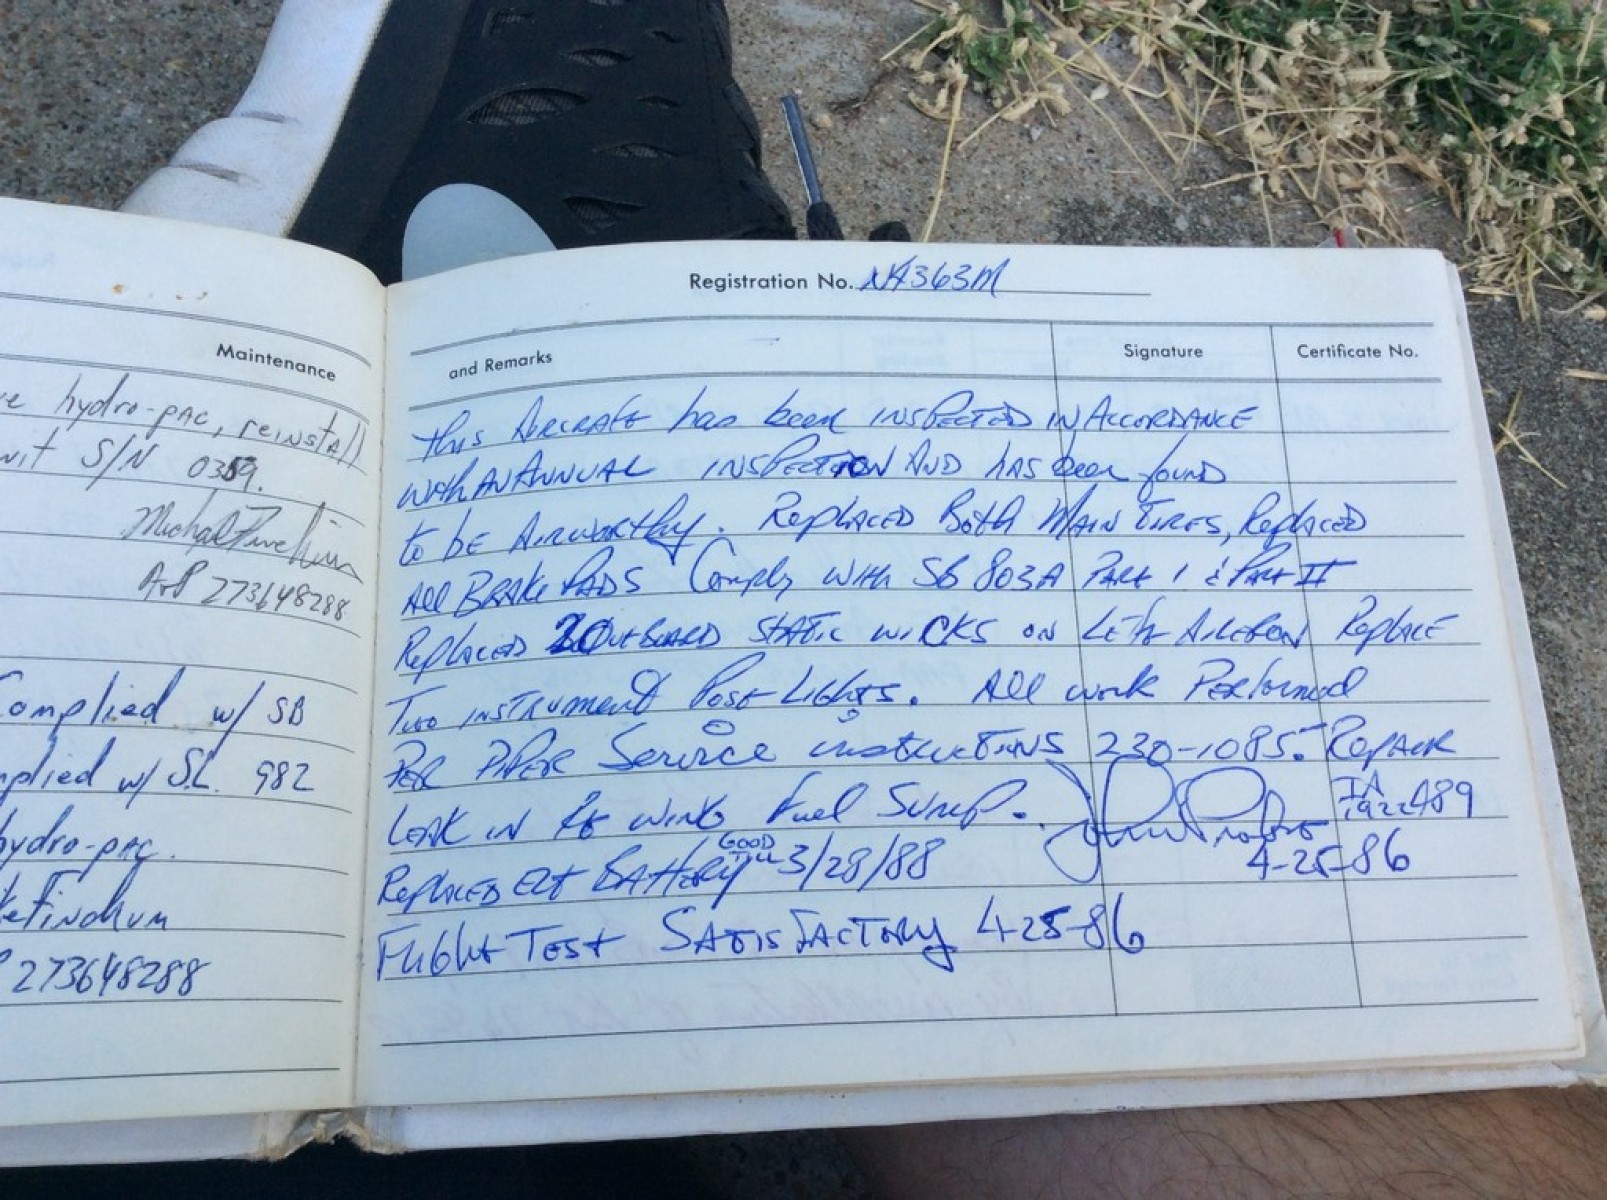 Maintenance
hydro-pac, reinstall
S/N 0359.
A&P 273648288
Complied w/ SB
w/ S.L. 982
hydro-pac.
273648288
Registration No. N4363M
and Remarks
Signature
Certificate No.
This Aircraft has been inspected in Accordance
with an Annual inspection And has been found
to be Airworthy. Replaced Both Main Tires, Replaced
All Brake Pads Comply with SB 803A Part 1 & Part II
Replaced 2 Outboard static wicks on Left Aileron Replace
Two instrument Post Lights. All work Performed
Per Piper Service instructions 230-1085. Repair
Leak in wing Fuel Sump. IA
Replaced Elt Battery GOOD 3/28/88 4-25-86
Flight Test Satisfactory 4-25-86